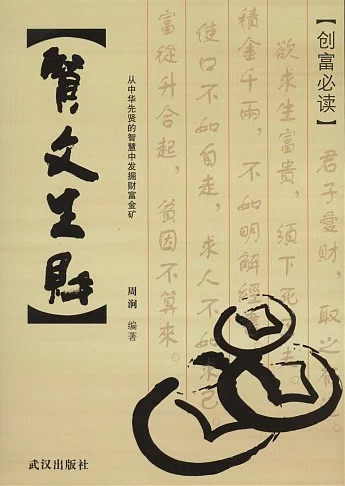 【创富必读】
君子愛財，取之
欲求生富貴，須下死
積金千兩，不如明解經
使口不如自走，求人不如求己。
富從升合起，貧因不算來。
从中华先贤的智慧中发掘财富金矿
周涧 编著
【賢文生財】
武汉出版社